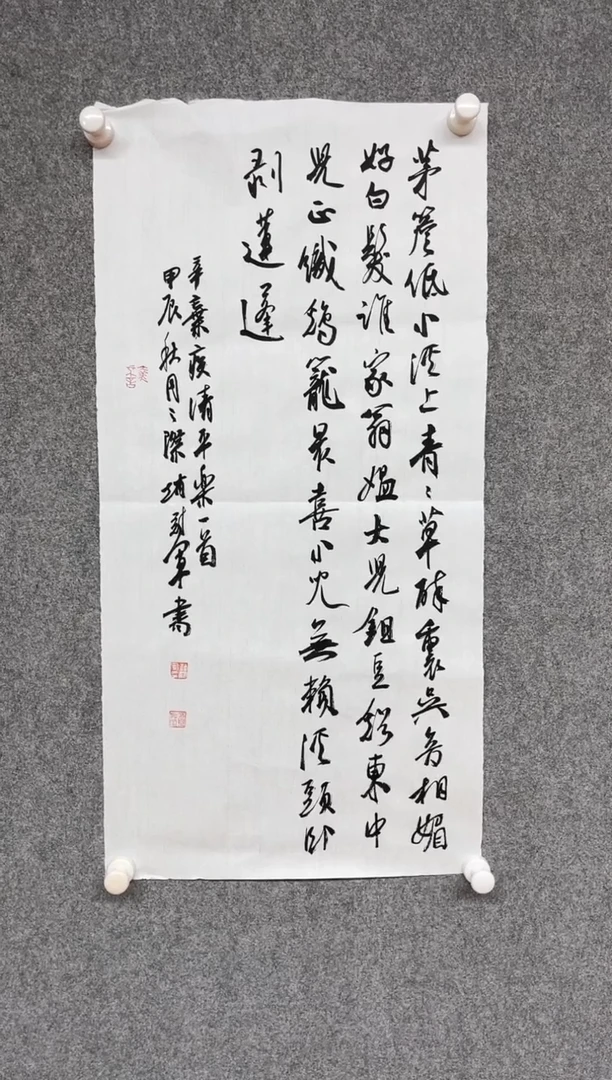 茅簷低小溪上青〻草醉裏吳音相媚
好白髮誰家翁媼大兒鉏豆谿東中
兒正織鷄籠最喜小兒無賴溪頭卧
剥蓮蓬
辛棄疾清平樂一首
甲辰秋月軍書